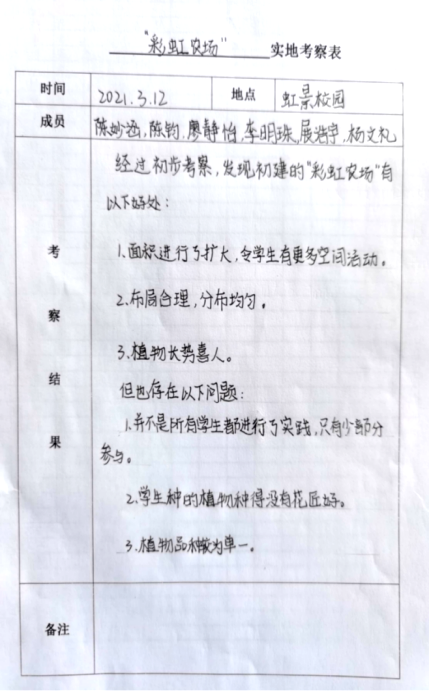 “彩虹农场” 实地考察表
时间 2021.3.12 地点 虹景校园
成员 陈妙涵,陈钧,廖静怡,李明珠,展浩宇,杨文礼
考察结果
经过初步考察,发现初建的“彩虹农场”有
以下好处:
1.面积进行了扩大,令学生有更多空间活动。
2.布局合理,分布均匀。
3.植物长势喜人。
但也存在以下问题:
1.并不是所有学生都进行了实践,只有少部分
参与。
2.学生种的植物种得没有花匠好。
3.植物品种较为单一。
备注